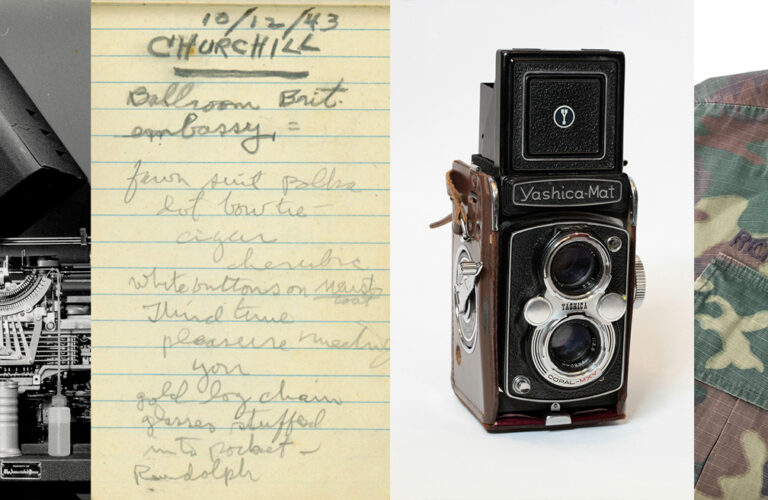 10/12/43
CHURCHILL
Ballroom Brit.
embassy, =
fawn suit Polka
dot bow tie -
cigar
cherubic
white buttons on
coat
Third time
pleasure meeting
you
gold log chain
glasses stuffed
into pocket -
Randolph
Y
Yashica-Mat
YASHICA
COPAL-MXV